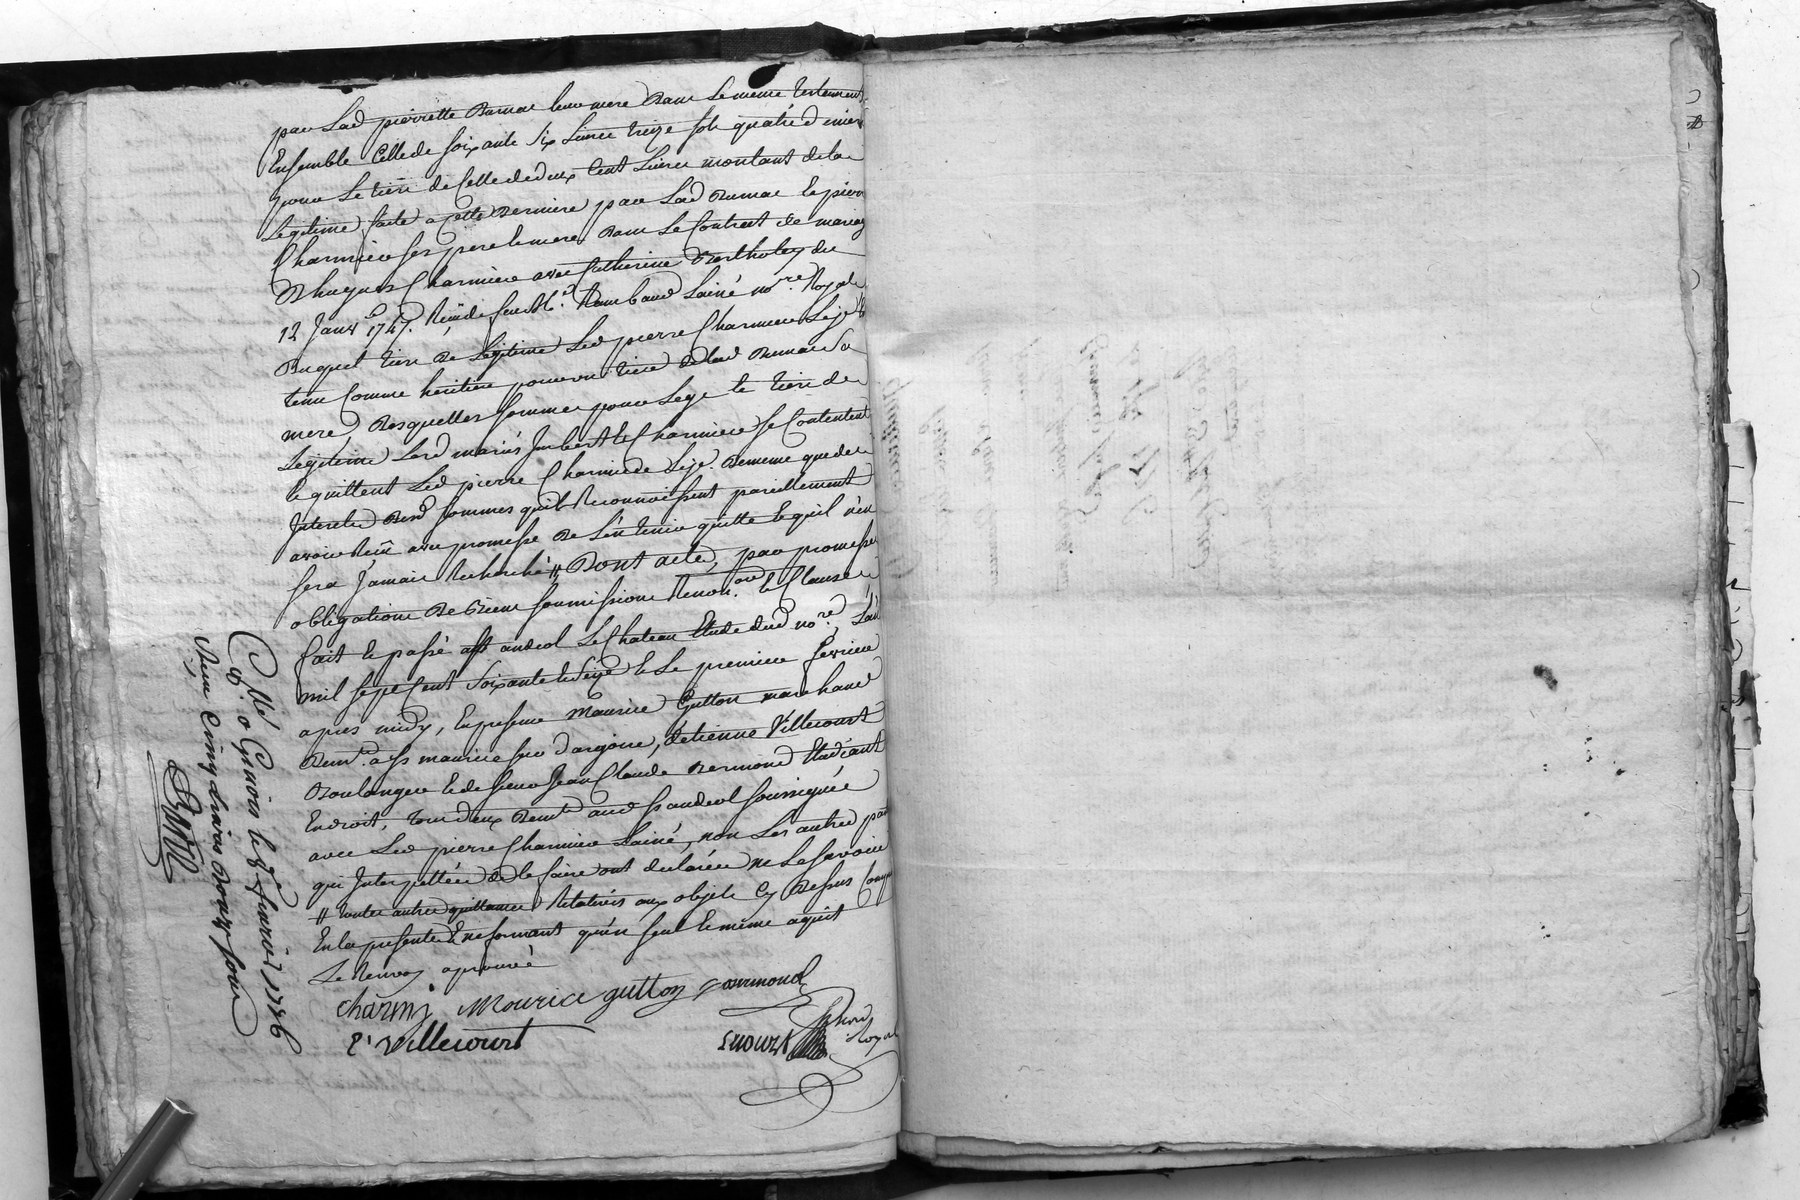 par Lad pierrette Dumas leur mere Dans Le meme testament
Ensemble Celle de soixante six Livres treize sols quatre deniers
pour Le tiers de Celle de deux Cent Livres montant de la
Legitime faite a cette Derniere par Lad Dumas et pierre
Charmier ses pere et mere Dans Le Contrat de mariage
D'hugues Charmier avec Catherine Bertholey du
12 Janvr 1747. Reçu de feu Me Raimbaud Lainé nore Royal
Duquel tiers De Legitime Led pierre Charmier
tenu Comme heritier pour un tiers de lad Dumas Sa
mere, Desquelles sommes pour Legs et tiers de
Legitime Lesd mariés Imbert et Charmier se Contentent
et quittent Led pierre Charmier De meme que des
Interets Desd sommes quils Reconnoissent pareillement
avoir Reçu avec promesse De L'en tenir quitte et quil n'en
sera Jamais Recherché // Dont acte, par promesses
obligations De Biens soumissions Renonons et Clauses
fait et passé a st andeol Le Chateau Etude dud nore, L'an
mil sept Cent soixante et seize et Le premier fevrier
apres midy, En presence maurice Gutton marchand
Demt a st maurice sur dargoire, d'etienne Villecourt
Boulanger et de sieur Jean Claude Dermond Etudiant
En droit, tous deux Demts aud st andeol soussignés
avec Led pierre Charmier Lainé, non Les autres parties
qui Interpellées de le faire ont declarées ne Le savoir
// toutes autres quittances Relatives aux objets Cy Dessus Comprises
En la presente Et ne formant qu'un seul et meme aquit
Le Renvoy aprouvé
charmy Mourice gutton
E' Villecourt
Royal
Clé a Givors le 8e fevrier 1776
Reçu Cinq Livres Douze sous